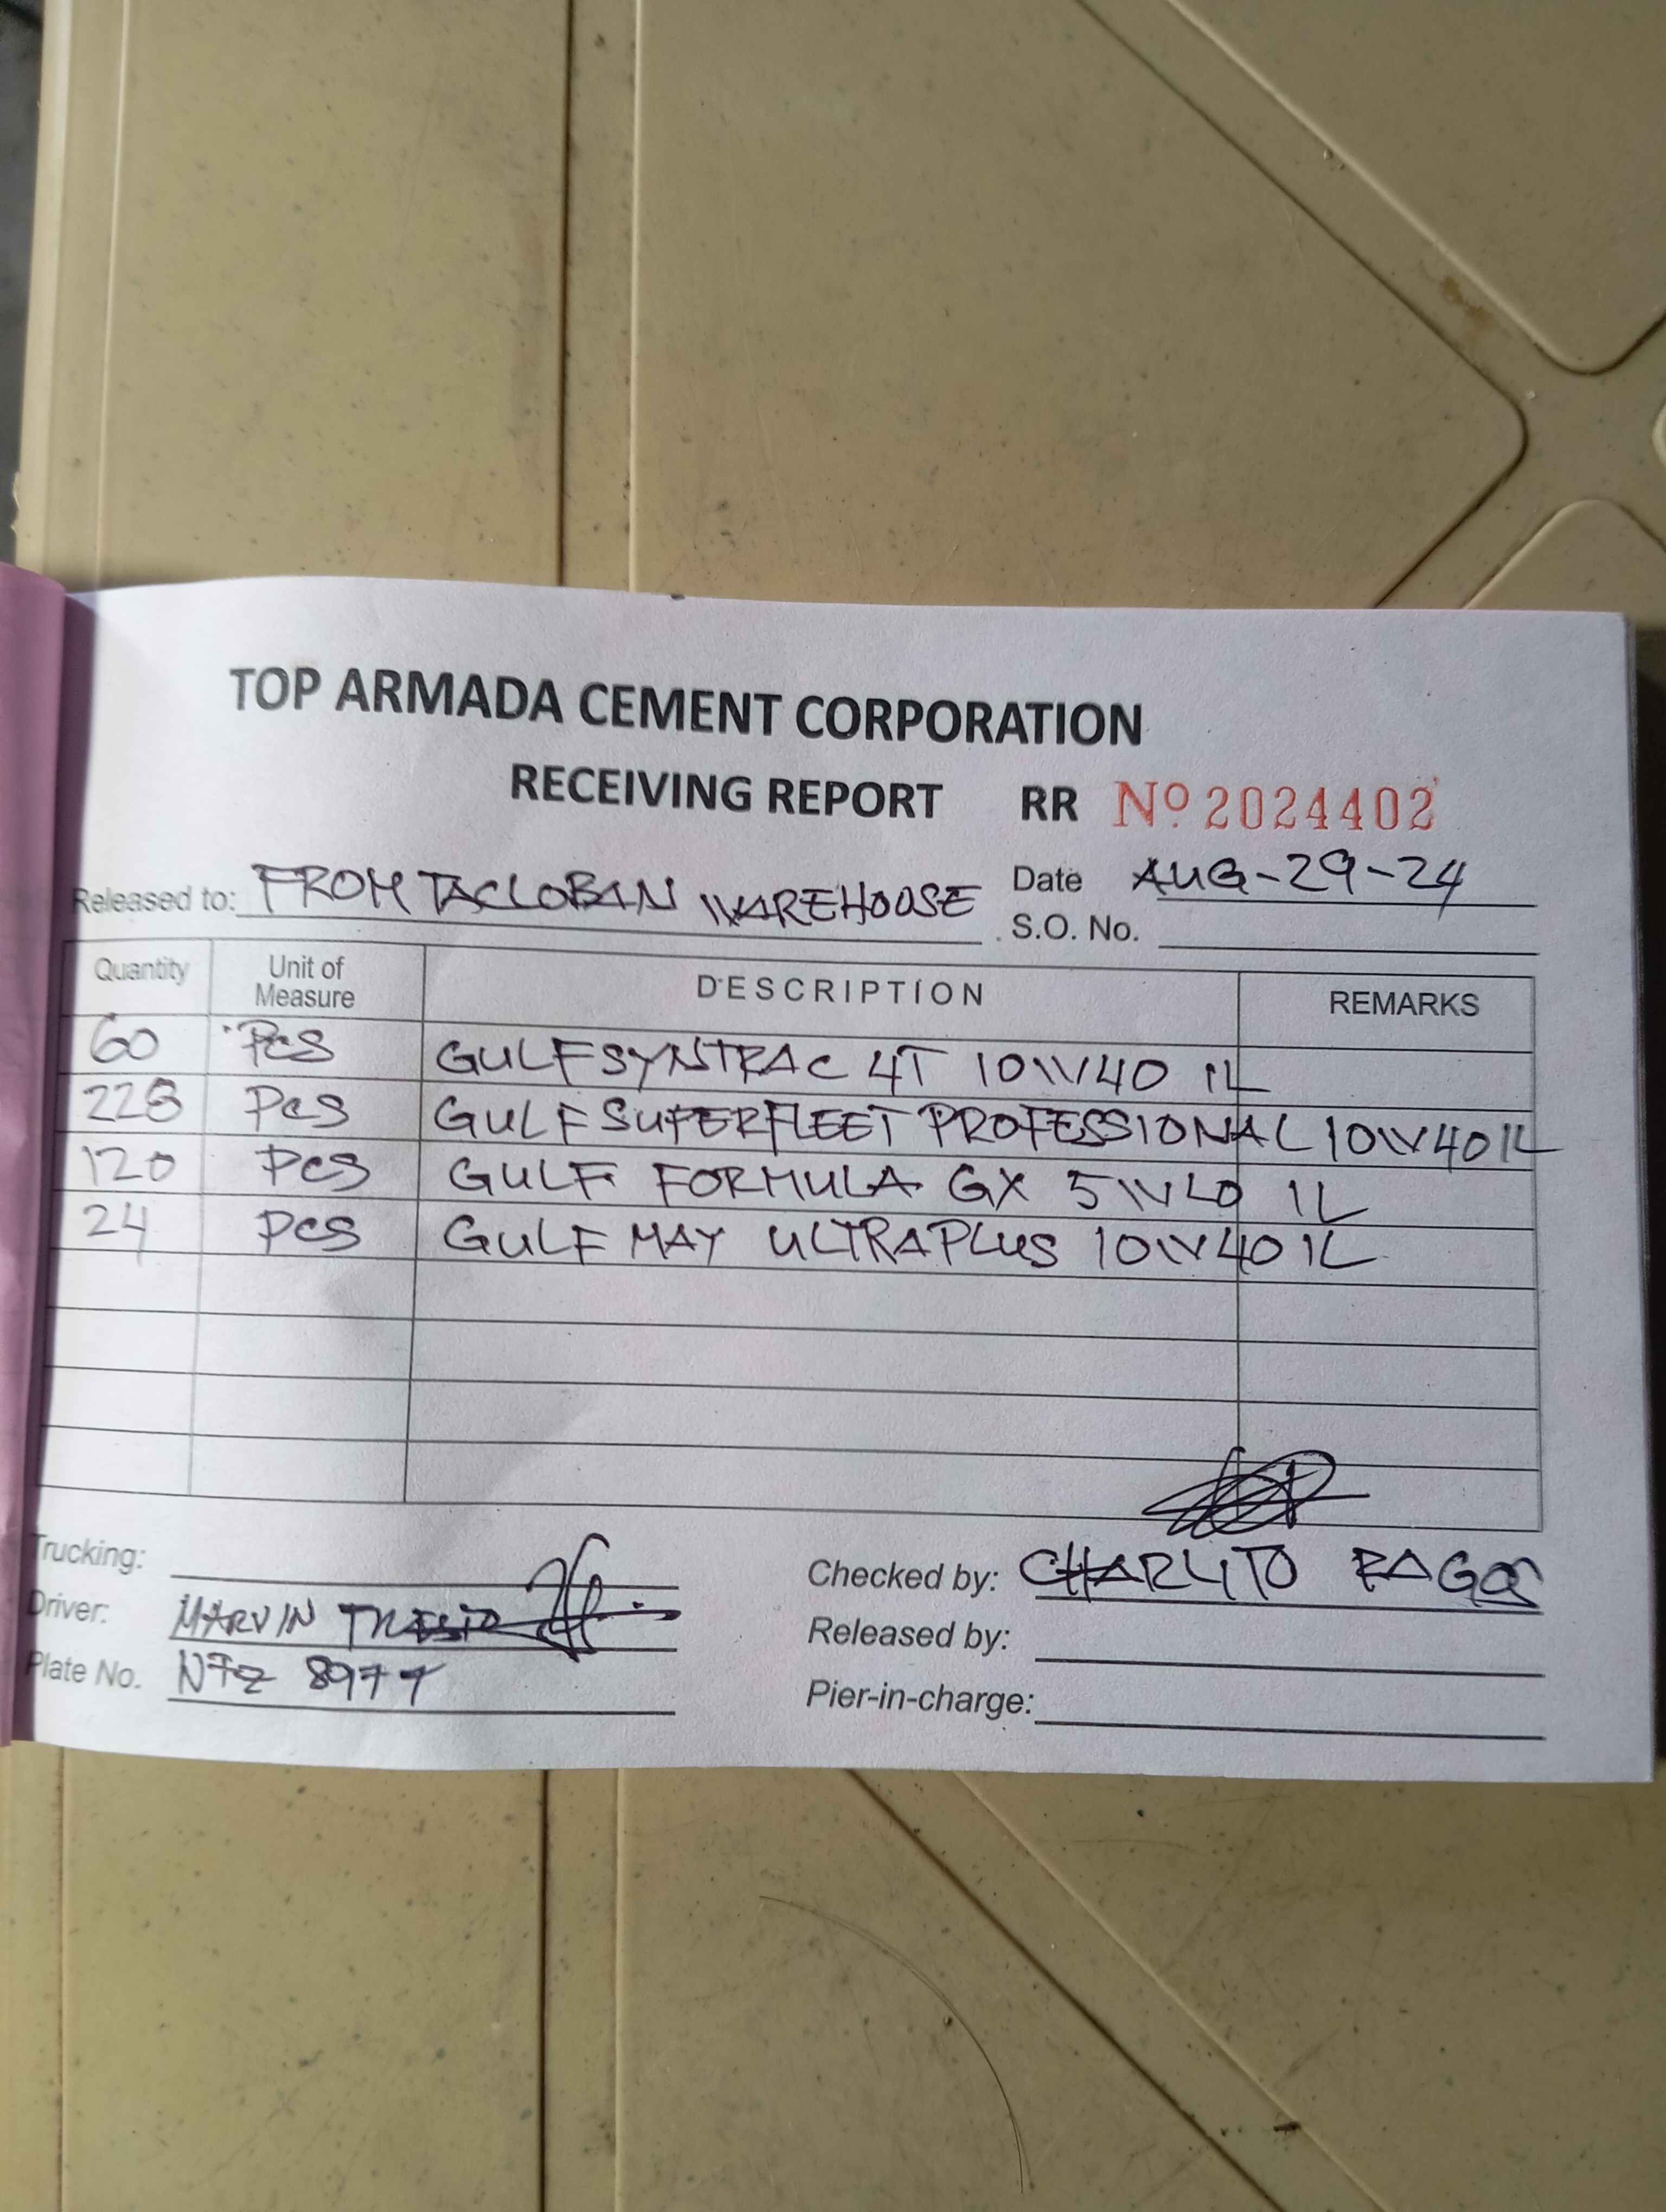 TOP ARMADA CEMENT CORPORATION
RECEIVING REPORT RR Nº 2024402
Released to: FROM TACLOBAN WAREHOUSE Date AUG-29-24
S.O. No.
Quantity Unit of Measure DESCRIPTION REMARKS
60 Pcs GULF SYNTRAC 4T 10W40 1L
228 Pcs GULF SUPERFLEET PROFESSIONAL 10W40 1L
120 Pcs GULF FORMULA GX 5W40 1L
24 Pcs GULF MAY ULTRAPLUS 10W40 1L
Trucking: Checked by: CHARLITO
Driver: MARVIN Released by:
Plate No. Pier-in-charge: